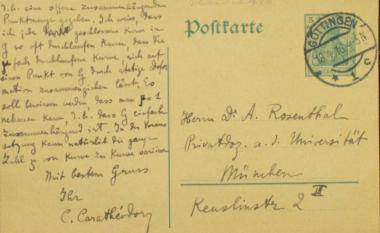 I.h. eine offene zusammenhängende
Punktmenge gegeben. Ich weiss, dass
ich jede geschlossene Kurve in
G so oft durchlaufen kann, dass die
durchlaufene Kurve, sich auf
einen Punkt von G durch stetige Defor-
mation zusammenziehen lässt. Es
soll bewiesen werden dass man p=1
nehmen kann, d.h. dass G einfach
zusammenhängend ist. In der Voraus-
setzung kann natürlich die ganze
Zahl p von Kurve zu Kurve variieren
Mit bestem Gruss
Ihr
C. Carathéodory
Postkarte
GÖTTINGEN
Herrn Dr A. Rosenthal
Privatdoz. a. d. Universität
München
Keuslinstr 2 II